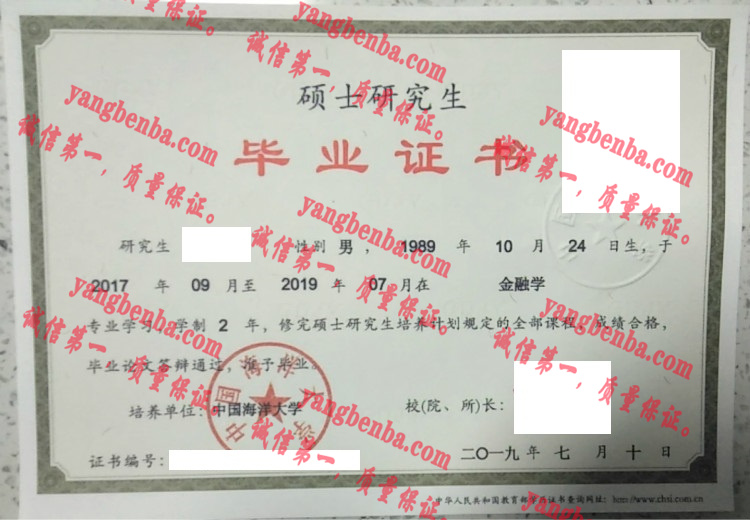 硕士研究生
毕业证书
研究生 性别 男 , 1989 年 10 月 24 日生, 于
2017 年 09 月至 2019 年 07 月在 金融学
专业学习, 学制 2 年, 修完硕士研究生培养计划规定的全部课程, 成绩合格,
毕业论文答辩通过, 准予毕业。
培养单位: 中国海洋大学 校(院、所)长:
证书编号: 二〇一九年 七 月 十 日
中华人民共和国教育部学历证书查询网址: http://www.chsi.com.cn
中国海洋大学
yangbenba.com
诚信第一, 质量保证。
yangbenba.com
诚信第一, 质量保证。
yangbenba.com
诚信第一, 质量保证。
yangbenba.com
诚信第一, 质量保证。
yangbenba.com
诚信第一, 质量保证。
yangbenba.com
诚信第一, 质量保证。
yangbenba.com
诚信第一, 质量保证。
yangbenba.com
诚信第一, 质量保证。
yangbenba.com
诚信第一, 质量保证。